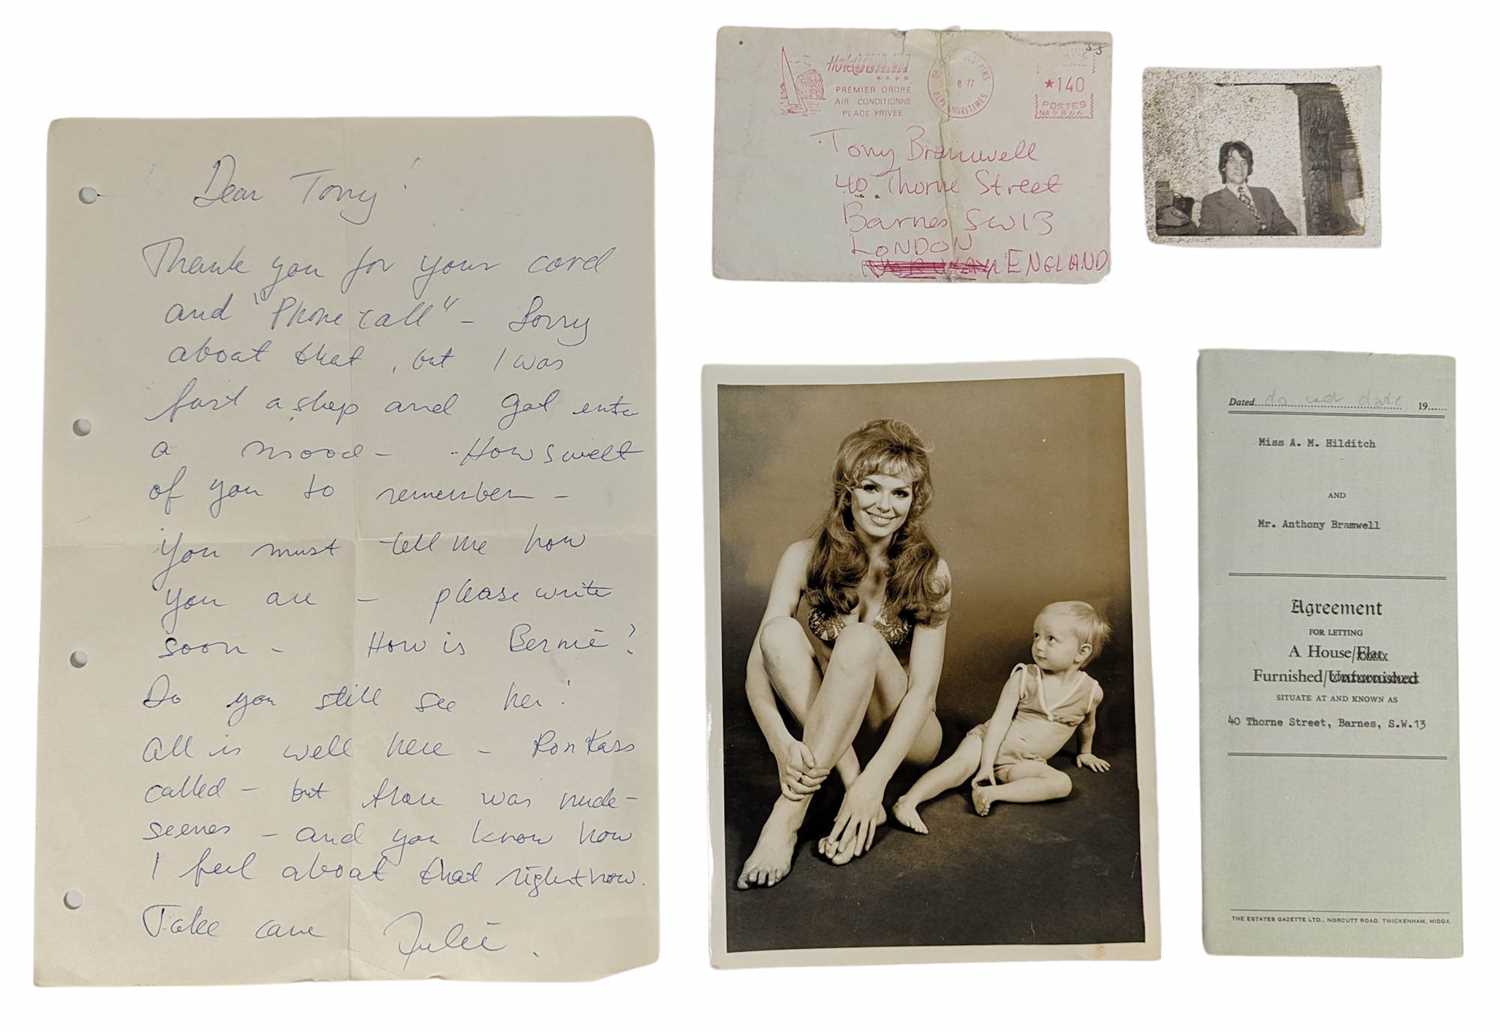 Dear Tony!
Thank you for your card
and "Phone call" – Sorry
about that, but I was
fast asleep and got into
a mood – How sweet
of you to remember –
You must tell me how
you are – please write
soon – How is Bernie?
Do you still see her!
All is well here – Ron Kass
called – but there was nude-
scenes – and you know how
I feel about that right now.
Take care Julie.
Holiday Inn
PREMIER ORDRE
AIR CONDITIONNE
PLAGE PRIVEE
8 77
ALPES MARITIMES
*140
POSTES
55
Tony Bramwell
40 Thorne Street
Barnes SW13
LONDON
ENGLAND
Dated do not date 19
Miss A. M. Hilditch
AND
Mr. Anthony Bramwell
Agreement
FOR LETTING
A House/Flat
Furnished/Unfurnished
SITUATE AT AND KNOWN AS
40 Thorne Street, Barnes, S.W.13
THE ESTATES GAZETTE LTD., NORCUTT ROAD, TWICKENHAM, MIDDX.